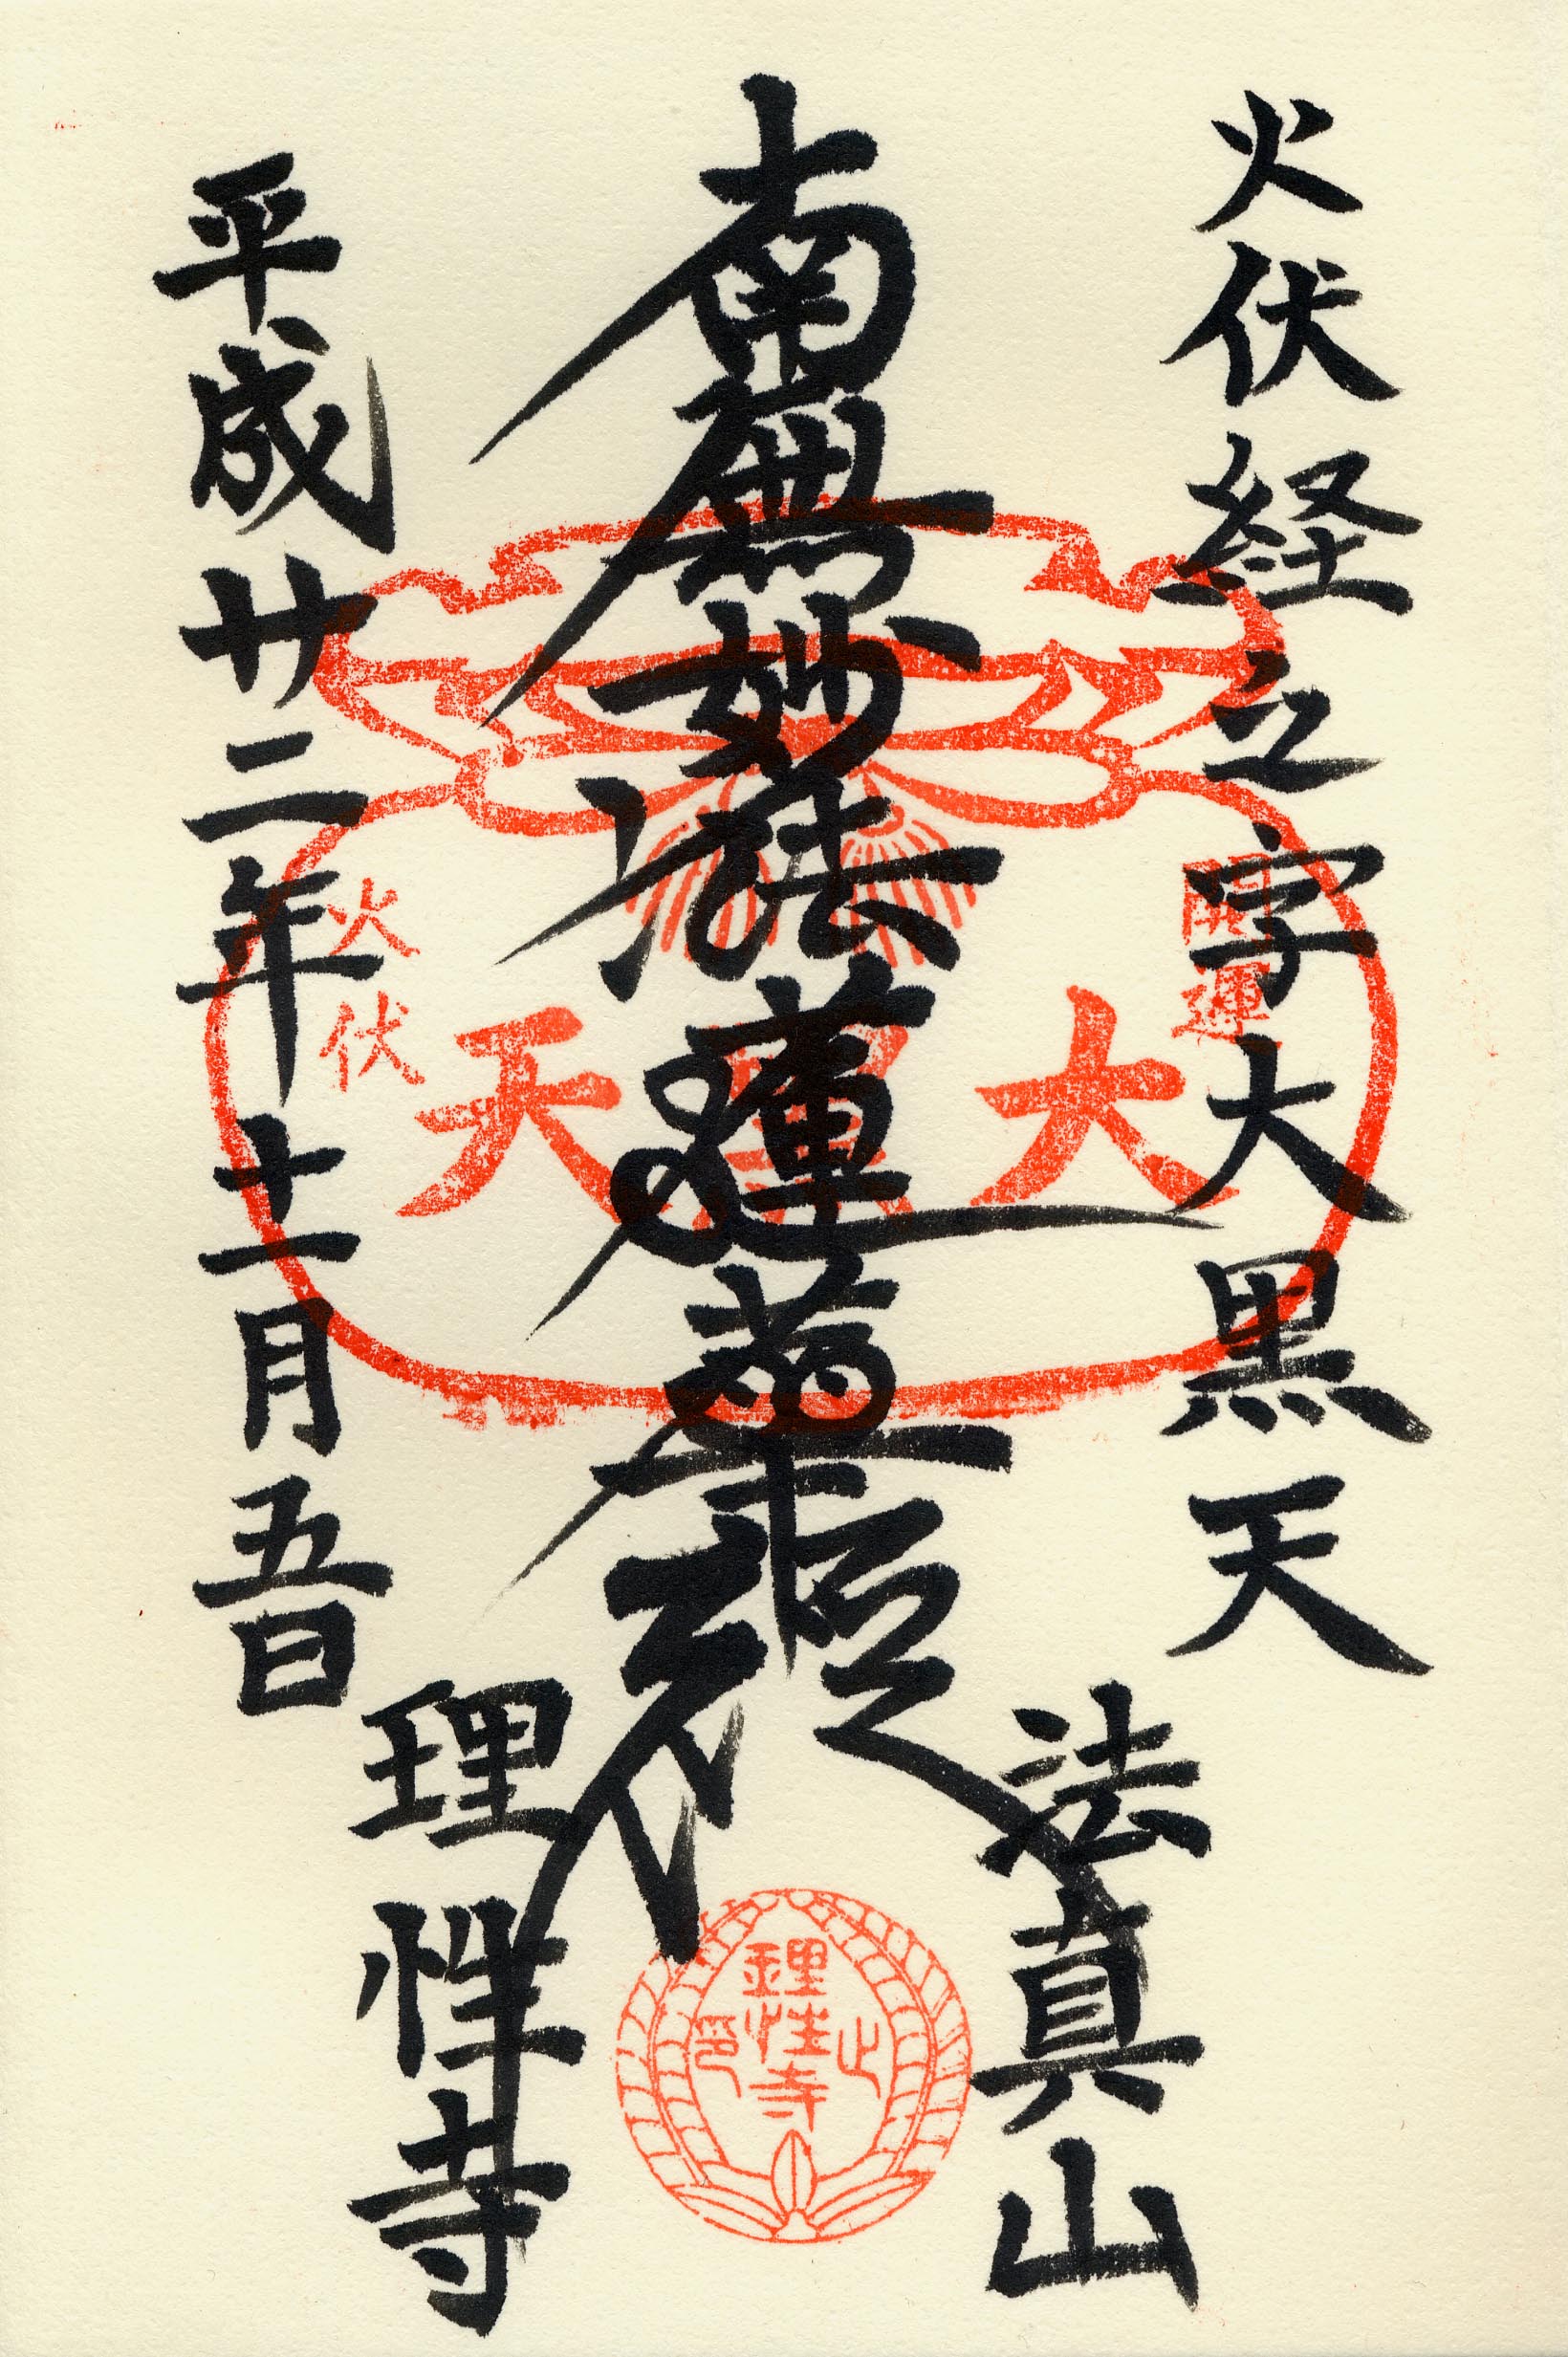 火伏経立字大黒天
法真山
南無妙法蓮華経
平成廿二年十一月五日
理性寺
開運
大
天
火伏
理性寺
之印